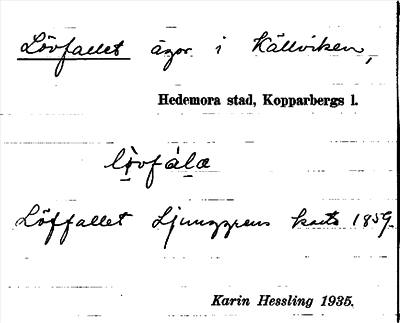 Lövfallet ägor i Källviken,
Hedemora stad, Kopparbergs l.
lövfala
Löffallet Ljunggrens karta 1859.
Karin Hessling 1935.